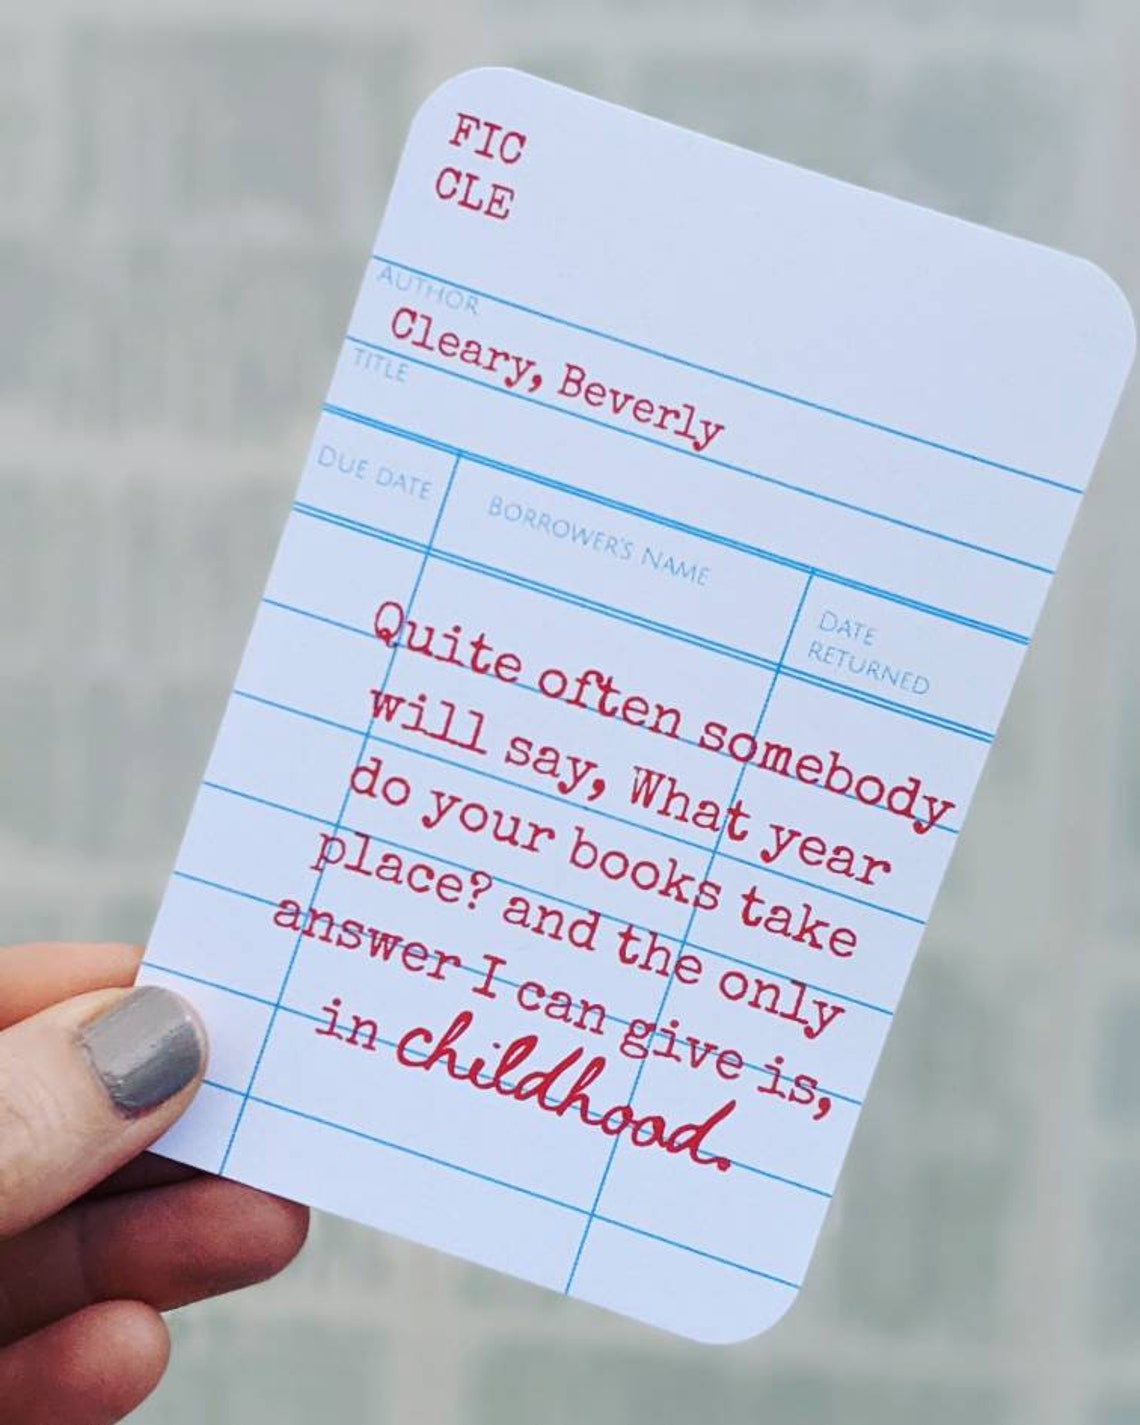 FIC
CLE
AUTHOR
Cleary, Beverly
TITLE
DUE DATE
BORROWER'S NAME
DATE
RETURNED
Quite often somebody
will say, What year
do your books take
place? and the only
answer I can give is,
in childhood.